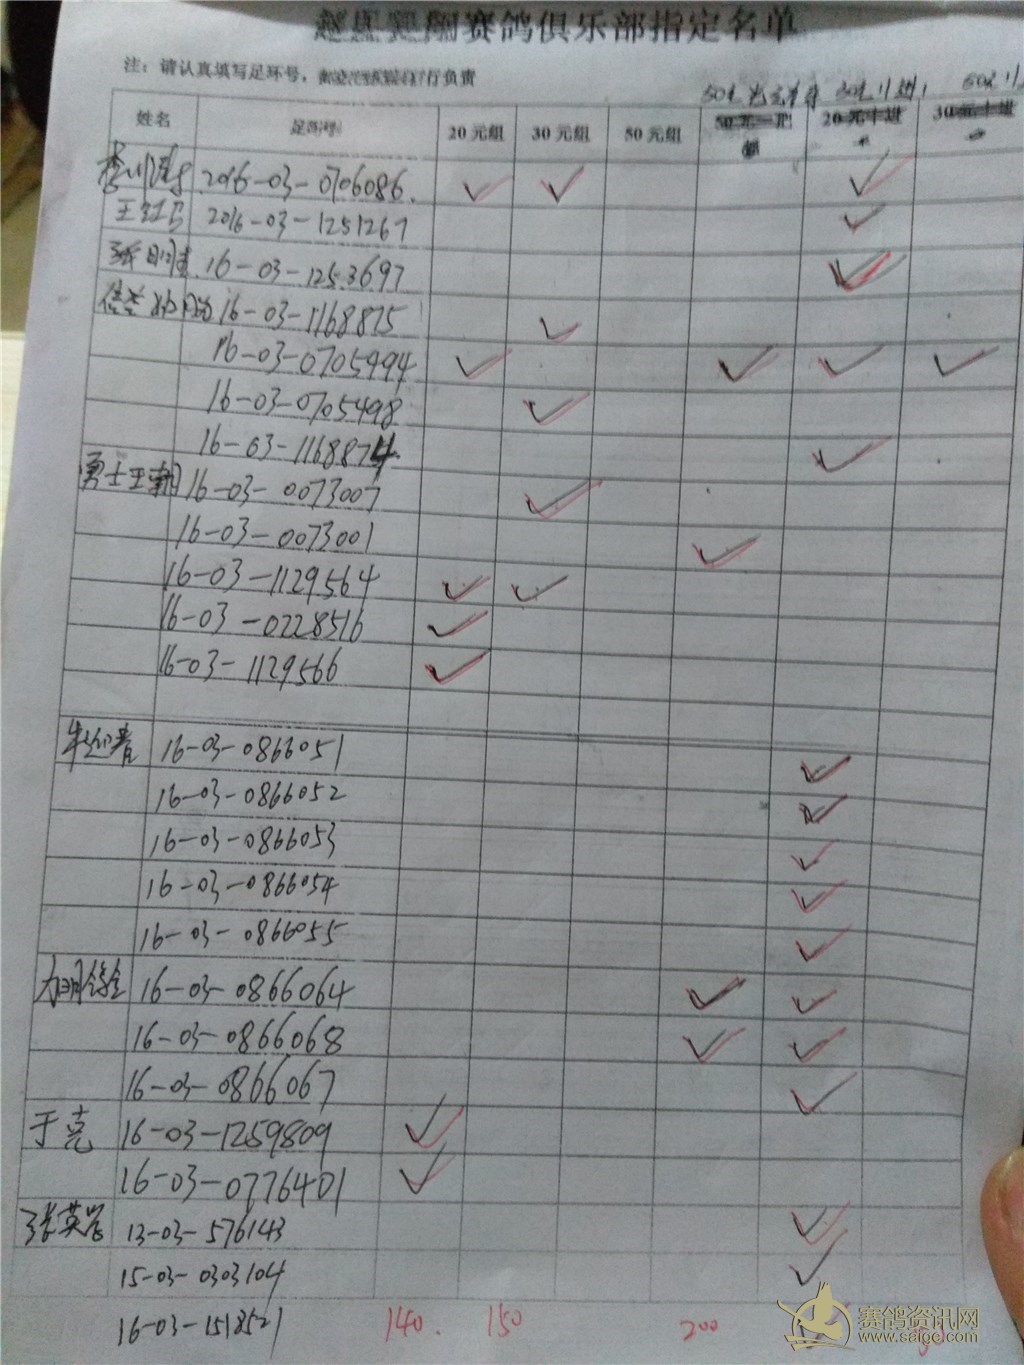 赛鸽俱乐部指定名单
注：请认真填写足环号，行负责
50元
姓名 足环号 20元组 30元组 50元组 50元一把 20元 30元
2016-03-0706086.
2016-03-1251267
16-03-1253697
16-03-1168875
16-03-0705994
16-03-0705498
16-03-1168874
勇士王朝 16-03-0073007
16-03-0073001
16-03-1129564
16-03-0228516
16-03-1129566
16-03-0866051
16-03-0866052
16-03-0866053
16-03-0866054
16-03-0866055
16-03-0866064
16-03-0866068
16-03-0866067
于亮 16-03-1259809
16-03-0776401
13-03-576143
15-03-0303104
16-03-1518521 140. 150 200
赛鸽资讯网
www.saige.com